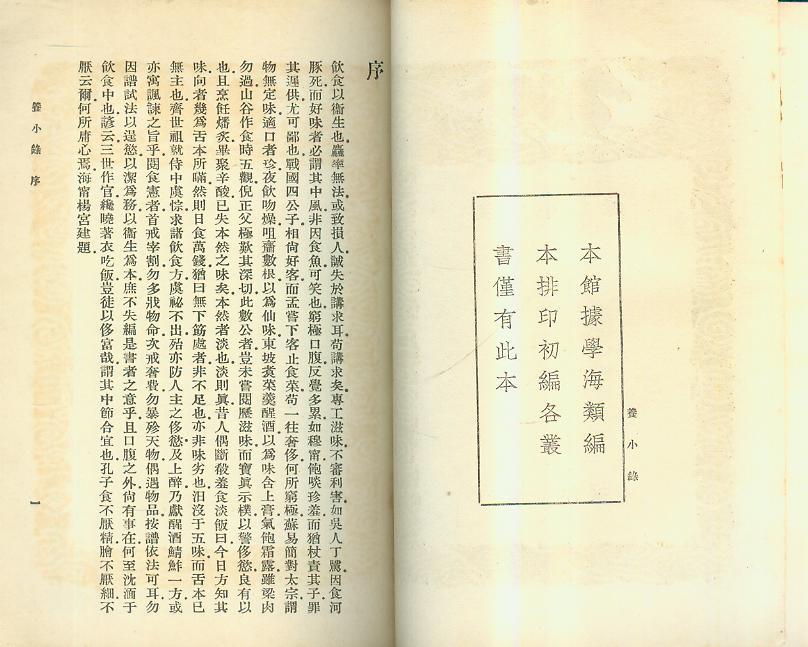 本館據學海類編
本排印初編各叢
書僅有此本
養小錄
序
飲食以衞生也麤率無法或致損人誠失於講求耳苟講求矣專工滋味不審利害如吳人丁騭因食河
豚死而好味者必謂其中風非因食魚可笑也窮極口腹反覺多累如穆甯飽啖珍羞而猶杖責其子罪
其遲供尤可鄙也戰國四公子相尙好客而孟嘗下客止食菜苟一往奢侈何所窮極蘇易簡對太宗謂
物無定味適口者珍夜飲吻燥咀齏數根以爲仙味東坡煑菜羹醒酒以爲味含土膏氣飽霜露雖粱肉
勿過山谷作食時五觀倪正父極歎其深切此數公者豈未嘗閱歷滋味而寶眞示樸以警侈慾良有以
也且烹飪燔炙畢聚辛酸已失本然之味矣本然者淡也淡則眞昔人偶斷殽羞食淡飯曰今日方知其
味向者幾爲舌本所瞞然則日食萬錢猶曰無下筯處者非不足也亦非味劣也汨沒于五味而舌本已
無主也齊世祖就侍中虞悰求諸飲食方虞祕不出殆亦防人主之侈慾及上醉乃獻醒酒鯖鮓一方或
亦寓諷諫之旨乎閱食憲者首戒宰割勿多戕物命次戒奢費勿暴殄天物偶遇物品按譜依法可耳勿
因譜試法以逞慾以潔爲務以衞生爲本庶不失編是書者之意乎且口腹之外尙有事在何至沈湎于
飲食中也諺云三世作官纔曉著衣吃飯豈徒以侈富哉謂其中節合宜也孔子食不厭精膾不厭細不
厭云爾何所庸心焉海甯楊宮建題
養小錄 序
一